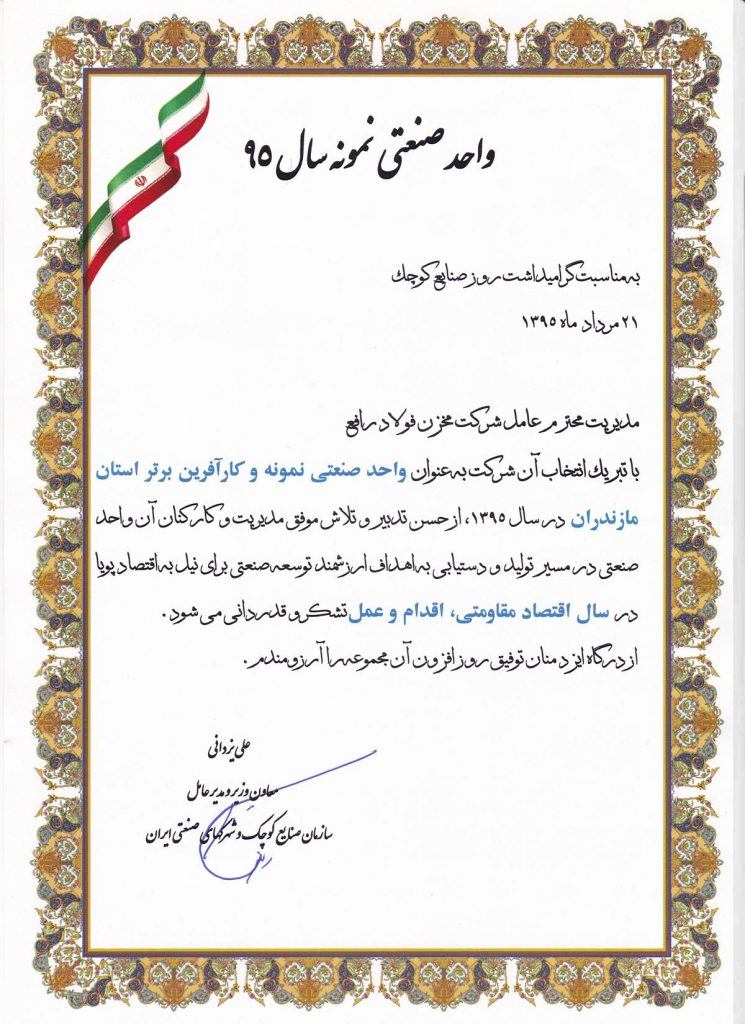 واحد صنعتی نمونه سال ۹۵
به مناسبت گرامیداشت روز صنایع کوچک
۲۱ مرداد ماه ۱۳۹۵
مدیریت محترم عامل شرکت مخزن فولاد رافع
با تبریک انتخاب آن شرکت به عنوان واحد صنعتی نمونه و کارآفرین برتر استان
مازندران در سال ۱۳۹۵، از حسن تدبیر و تلاش موفق مدیریت و کارکنان آن واحد
صنعتی در مسیر تولید و دستیابی به اهداف ارزشمند توسعه صنعتی برای نیل به اقتصاد پویا
در سال اقتصاد مقاومتی، اقدام و عمل تشکر و قدردانی می شود.
از درگاه ایزد منان توفیق روز افزون آن مجموعه را آرزومندم.
علی یزدانی
معاون وزیر و مدیر عامل
سازمان صنایع کوچک و شهرکهای صنعتی ایران